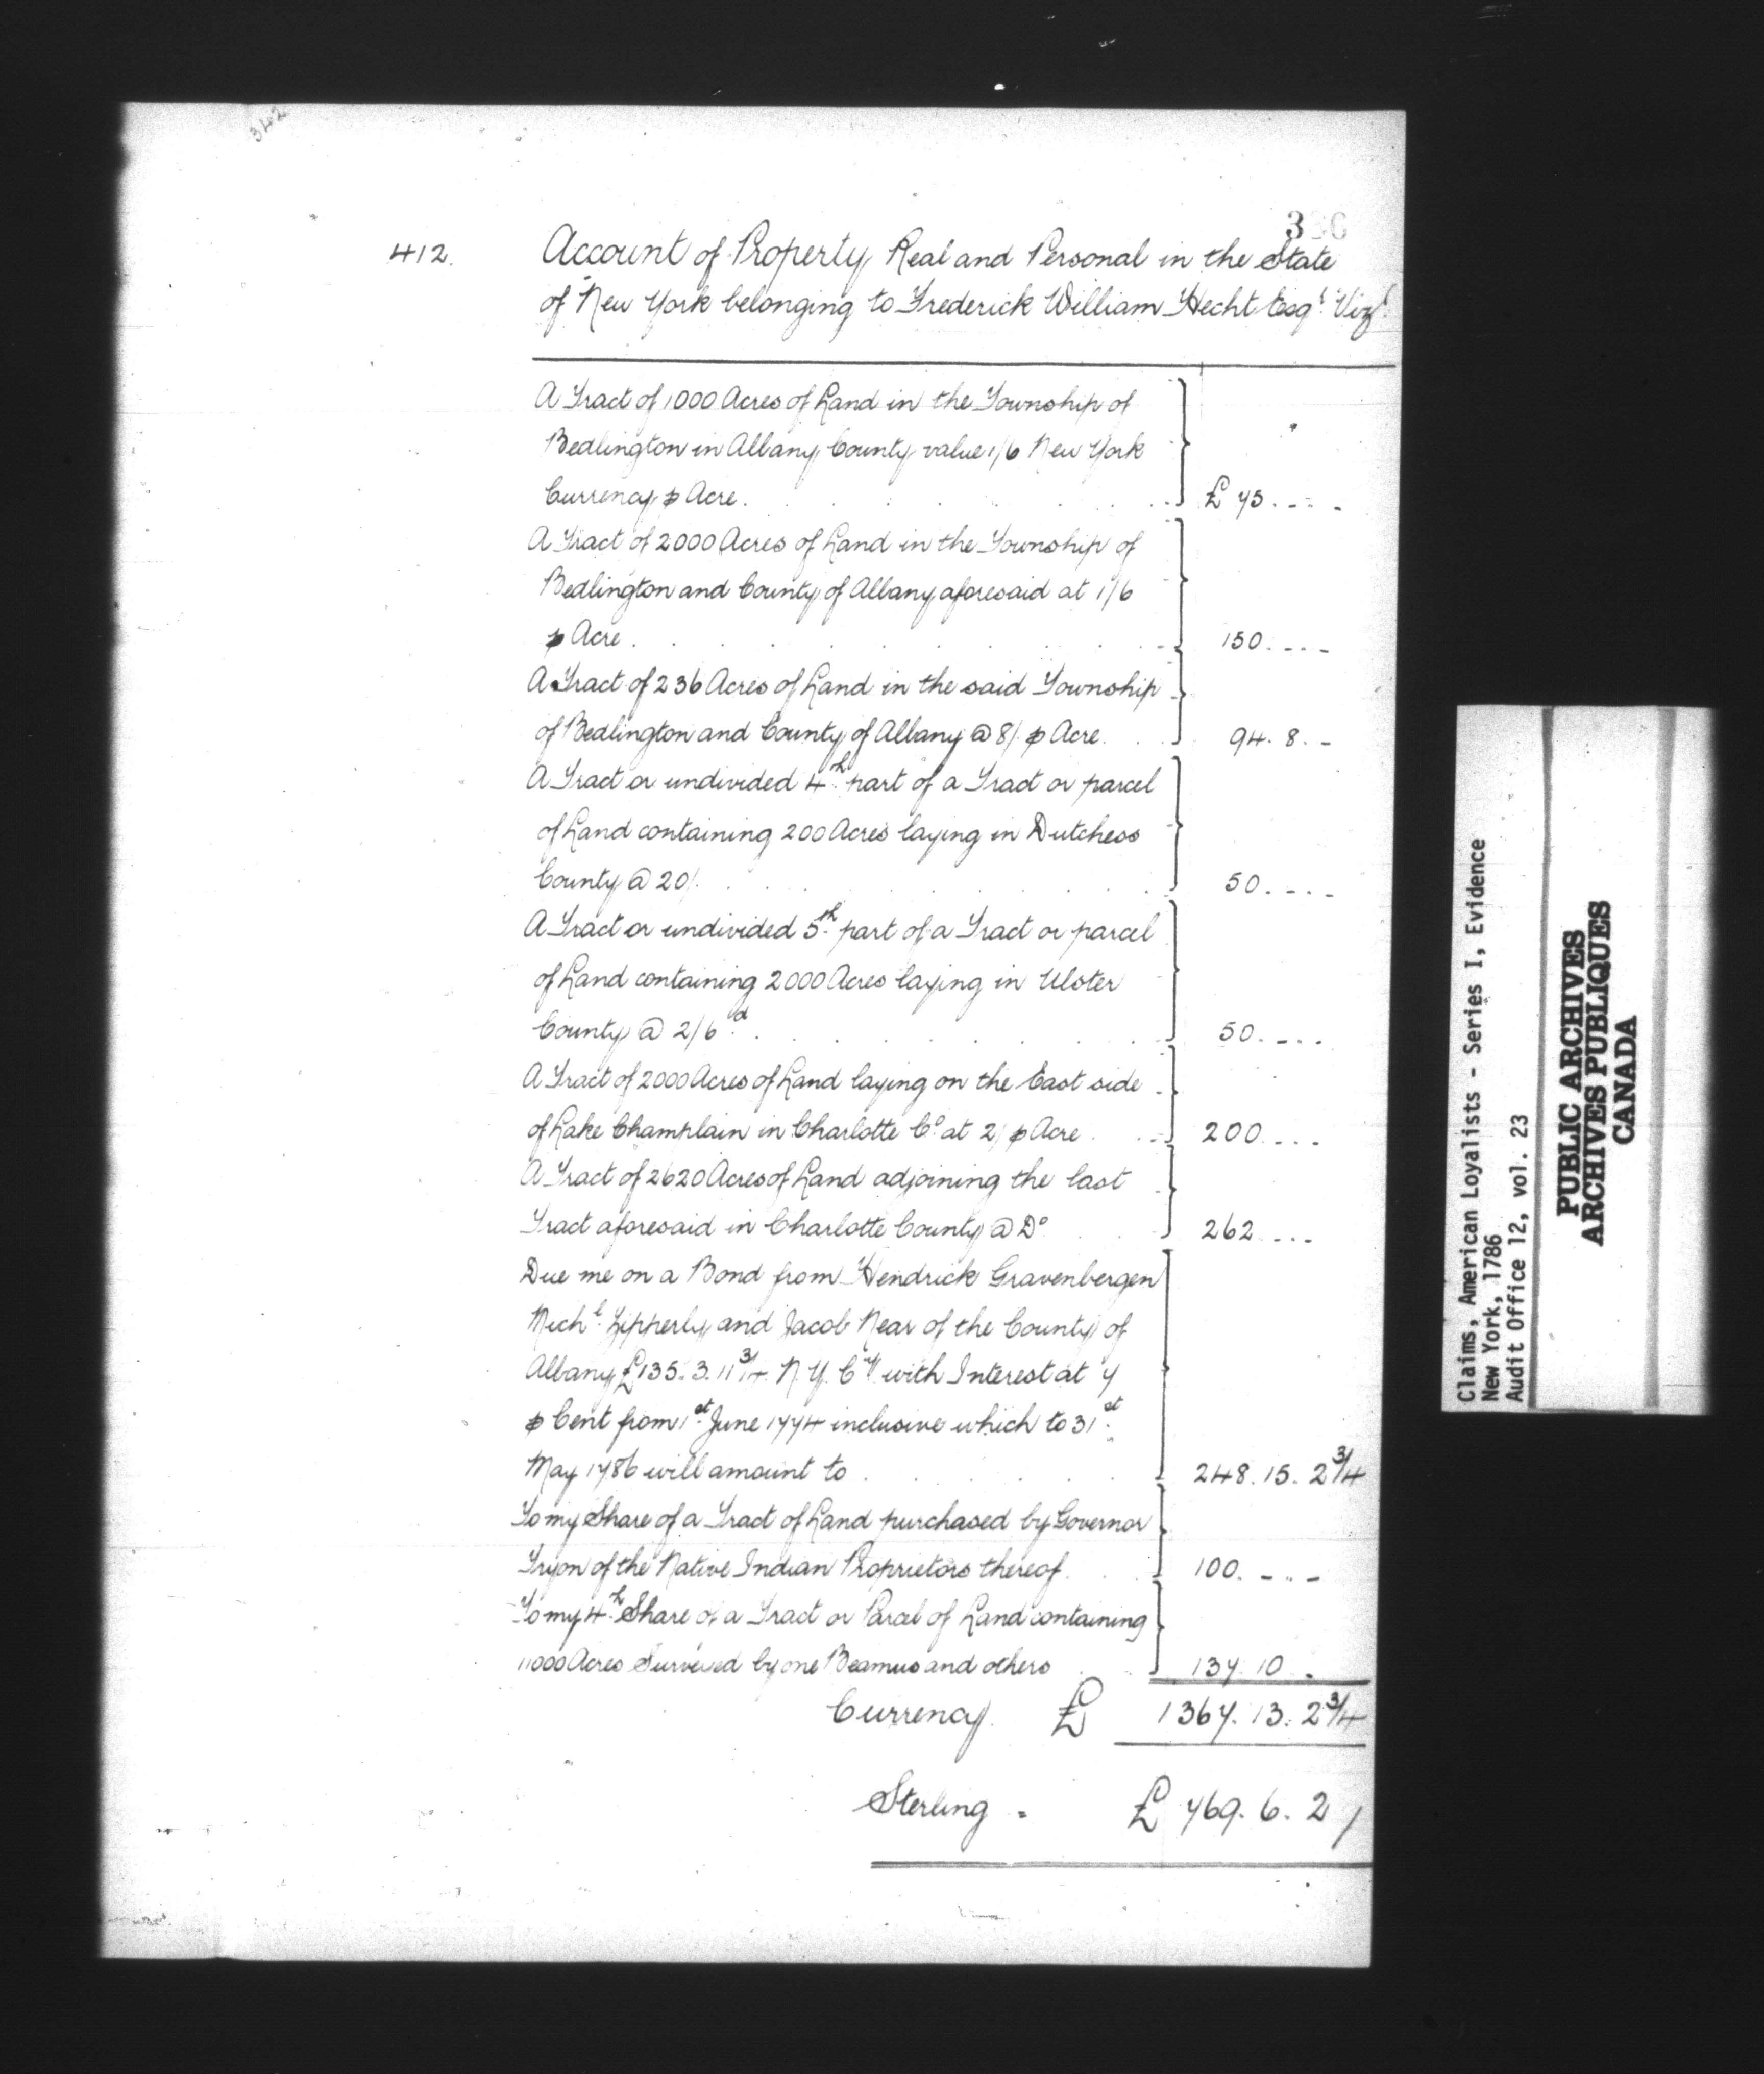 342
412.
Account of Property Real and Personal in the State
of New York belonging to Frederick William Hecht Esqr. Vizt.
A Tract of 1000 Acres of Land in the Township of
Bedlington in Albany County value 1/6 New York
Currency p Acre. £ 75. - - -
A Tract of 2000 Acres of Land in the Township of
Bedlington and County of Albany aforesaid at 1/6
p Acre. 150. - - -
A Tract of 236 Acres of Land in the said Township
of Bedlington and County of Albany @ 8/ p Acre. 94. 8. -
A Tract or undivided 4th part of a Tract or parcel
of Land containing 200 Acres laying in Dutchess
County @ 20/. 50. - - -
A Tract or undivided 5th part of a Tract or parcel
of Land containing 2000 Acres laying in Ulster
County @ 2/6d. 50. - - -
A Tract of 2000 Acres of Land laying on the East side
of Lake Champlain in Charlotte Co. at 2/ p Acre. 200. - - -
A Tract of 2620 Acres of Land adjoining the last
Tract aforesaid in Charlotte County @ Do 262 - - -
Due me on a Bond from Hendrick Gravenbergen
Michl. Zipperly and Jacob Near of the County of
Albany £135. 3. 11 3/4 N. Y. Cy with Interest at 7
p Cent from 1st June 1774 inclusive which to 31st
May 1786 will amount to 248. 15. 2 3/4
To my Share of a Tract of Land purchased by Governor
Tryon of the Native Indian Proprietors thereof. 100. - - -
To my 4th Share of a Tract or Parcel of Land containing
11000 Acres Surveyed by one Beamus and others 137. 10 -
Currency £ 1367. 13. 2 3/4
Sterling = £ 769. 6. 2 /
Claims, American Loyalists - Series I, Evidence
New York, 1786
Audit Office 12, vol. 23
PUBLIC ARCHIVES
ARCHIVES PUBLIQUES
CANADA